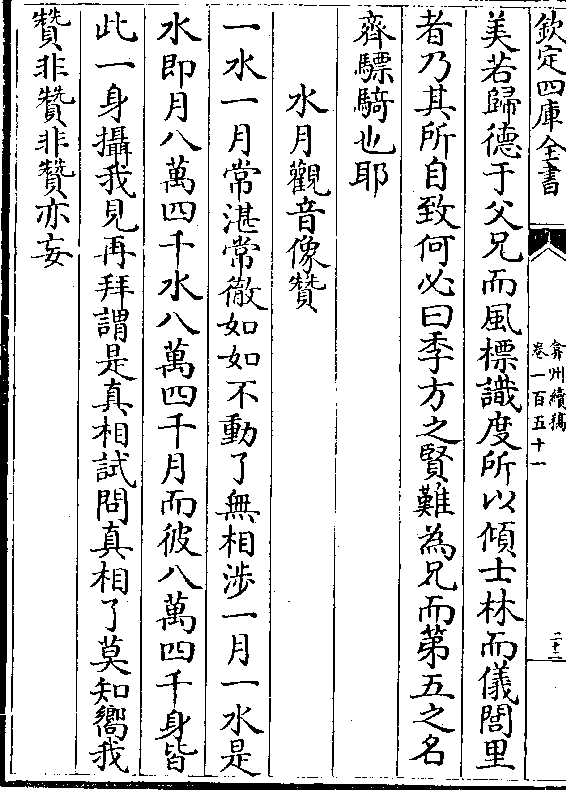 欽定四庫全書
弇州續稿
卷一百五十一
二十二
美若歸德于父兄而風標識度所以傾士林而儀閭里
者乃其所自致何必曰季方之賢難為兄而第五之名
齊驃騎也耶
水月觀音像贊
一水一月常湛常徹如如不動了無相涉一月一水是
水即月八萬四千水八萬四千月而彼八萬四千身皆
此一身攝我見再拜謂是真相試問真相了莫知嚮我
贊非贊非贊亦妄